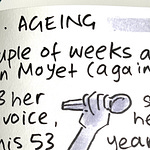 . AGEING
uple of weeks a
n Moyet (again
her s
voice,
his 53 year